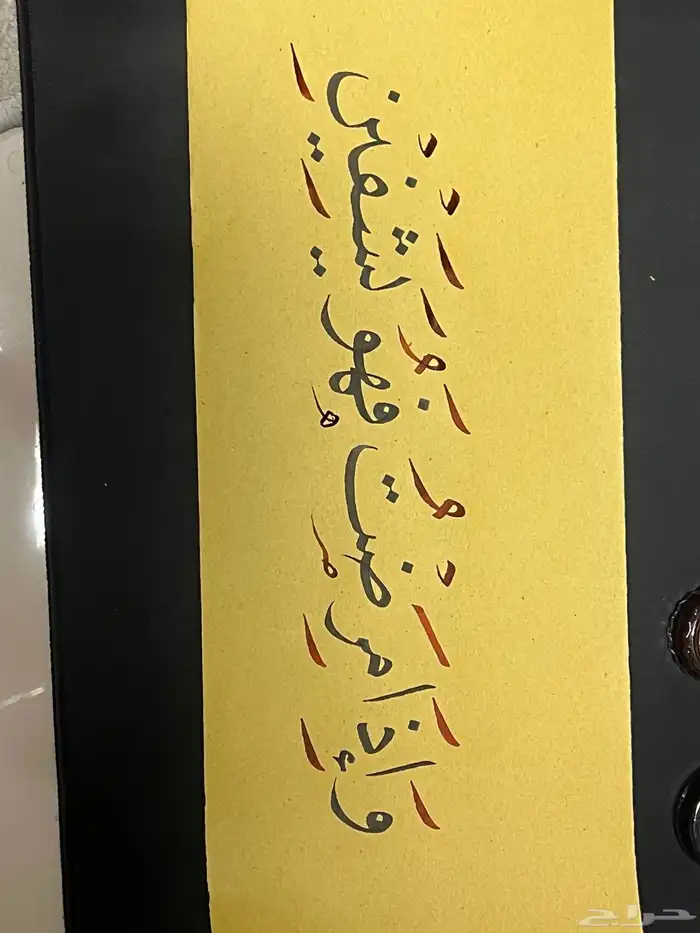 وَإِذَا مَرِضْتُ فَهُوَ يَشْفِينِ
حراج